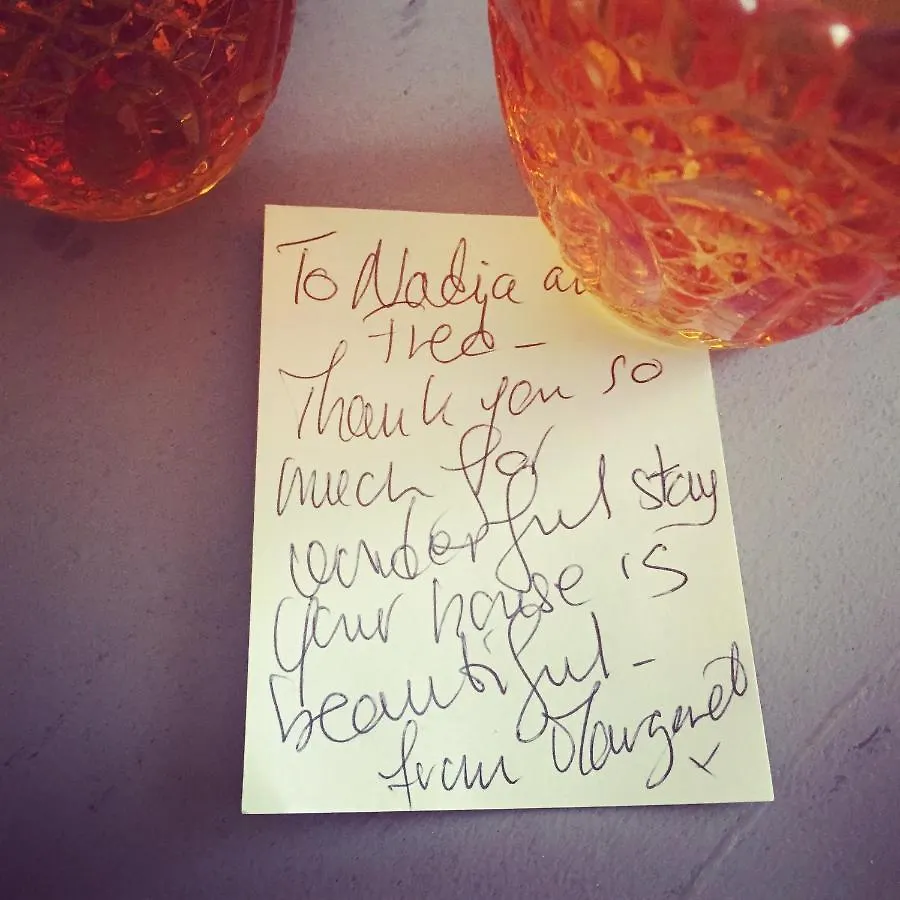 To Nadja an
Fred –
Thank you so
much for
wonderful stay
your house is
beautiful –
from Margaret
x